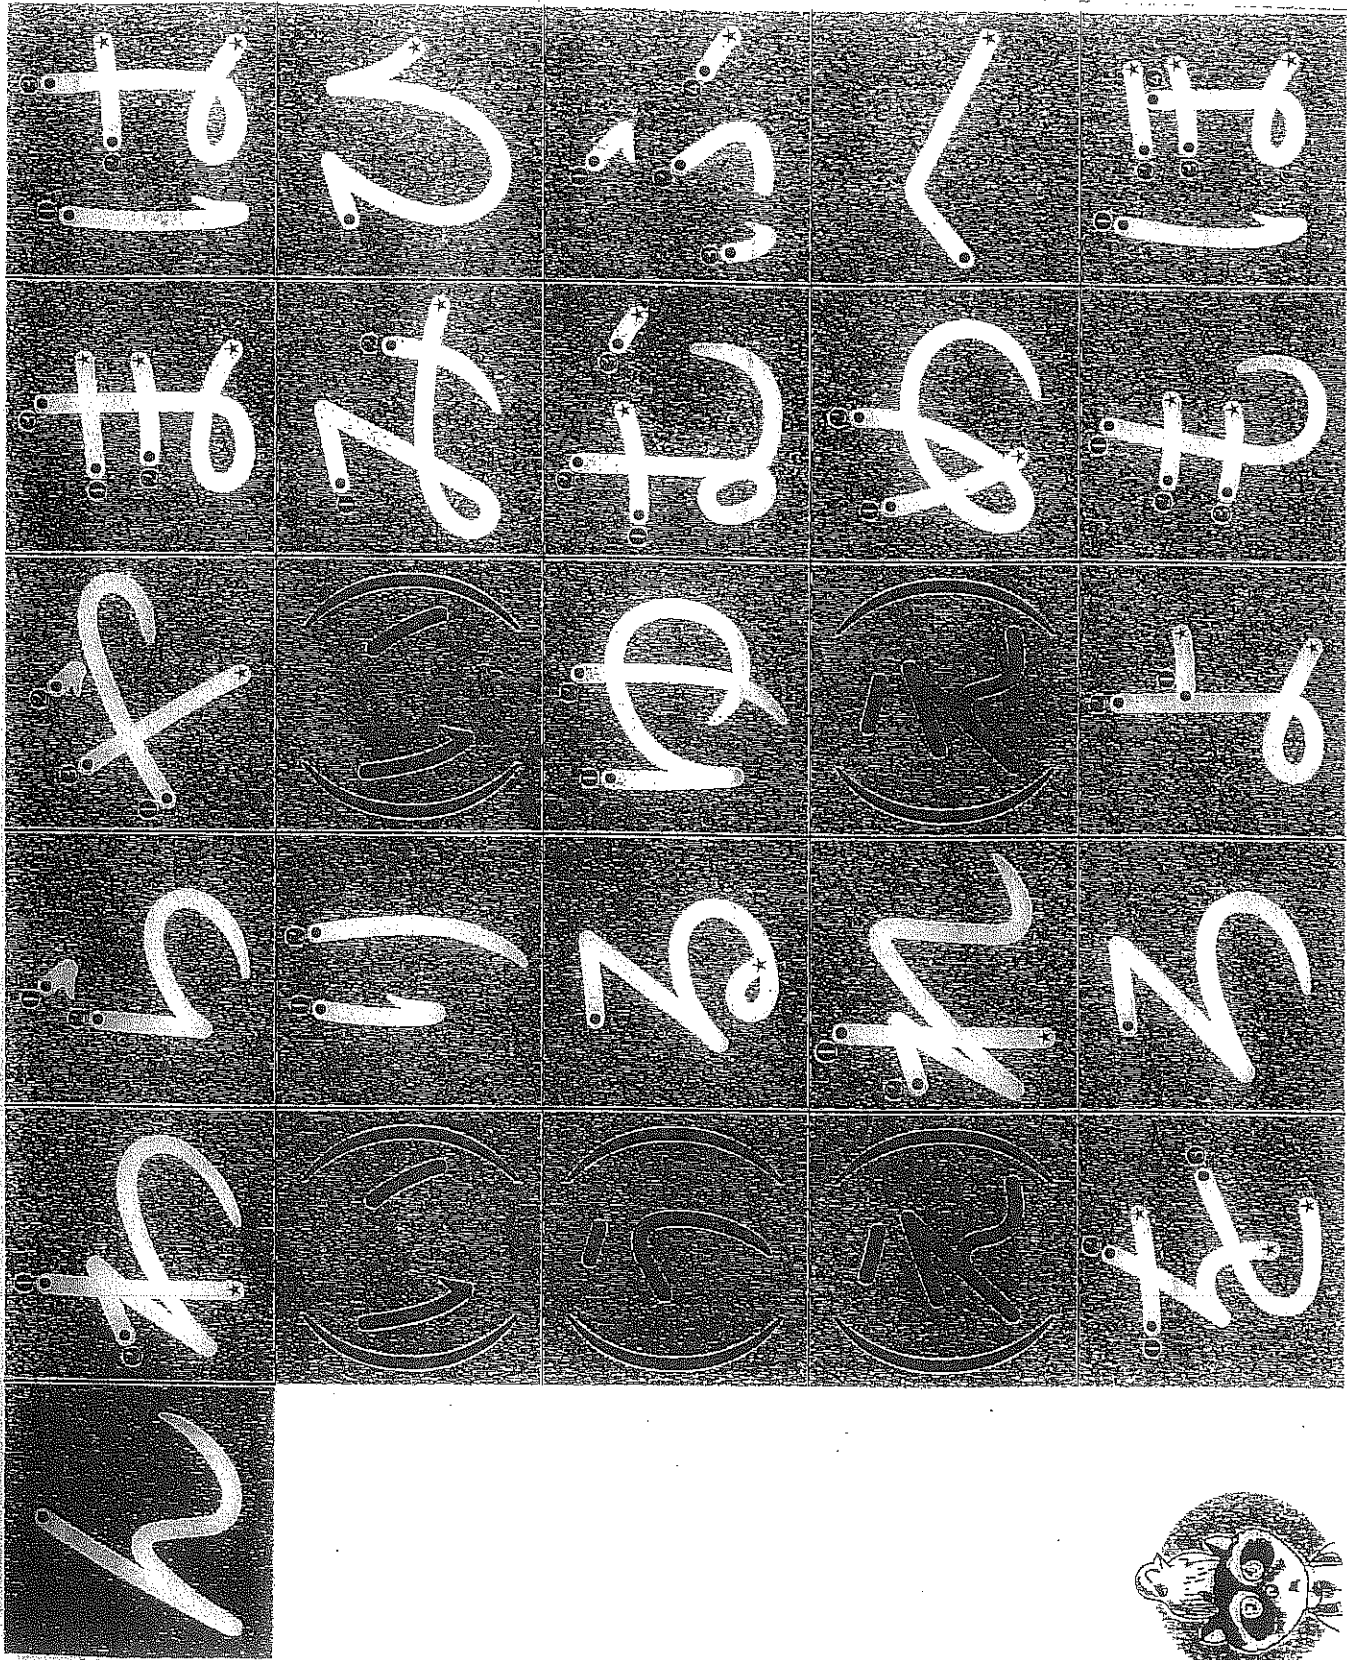 んわらやまは
(い)り(い)みひ
(う)るゆむふ
(え)れ(え)めへ
をろよもほ